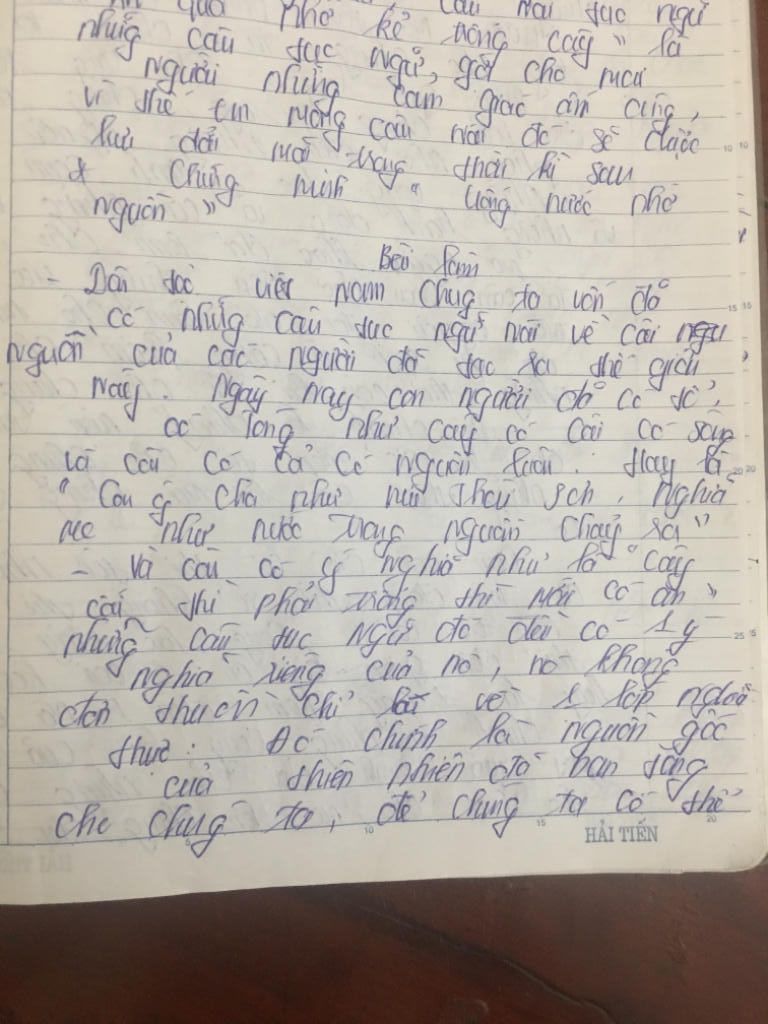 ăn quả nhớ kẻ trồng cây" là
những câu tục ngữ, gợi cho mọi
người những cảm giác ấm cúng,
vì thế em mong câu nói đó sẽ được
lưu dài mãi trong thời kì sau
* Chứng minh " Uống nước nhớ
nguồn "
Bài làm
- Dân tộc việt nam chúng ta vốn đã
có những câu tục ngữ nói về cái
nguồn của các người đã tạo ra thế giới
này. Ngày nay con người đã có
có lòng như cây có cội có sông
và câu có cả có nguồn luôn. Hay là
" Con cha như núi thái sơn, Nghĩa
mẹ như nước trong nguồn chảy ra "
- Và câu có ý nghĩa như là " cây
cối thì phải trồng thì mới có ăn "
những câu tục ngữ đó đều có 1 ý
nghĩa riêng của nó, nó không
đơn thuần chỉ về 1 lớp
thực. Đó chính là nguồn gốc
của thiên nhiên đã ban tặng
cho chúng ta, để chúng ta có thể
HẢI TIẾN